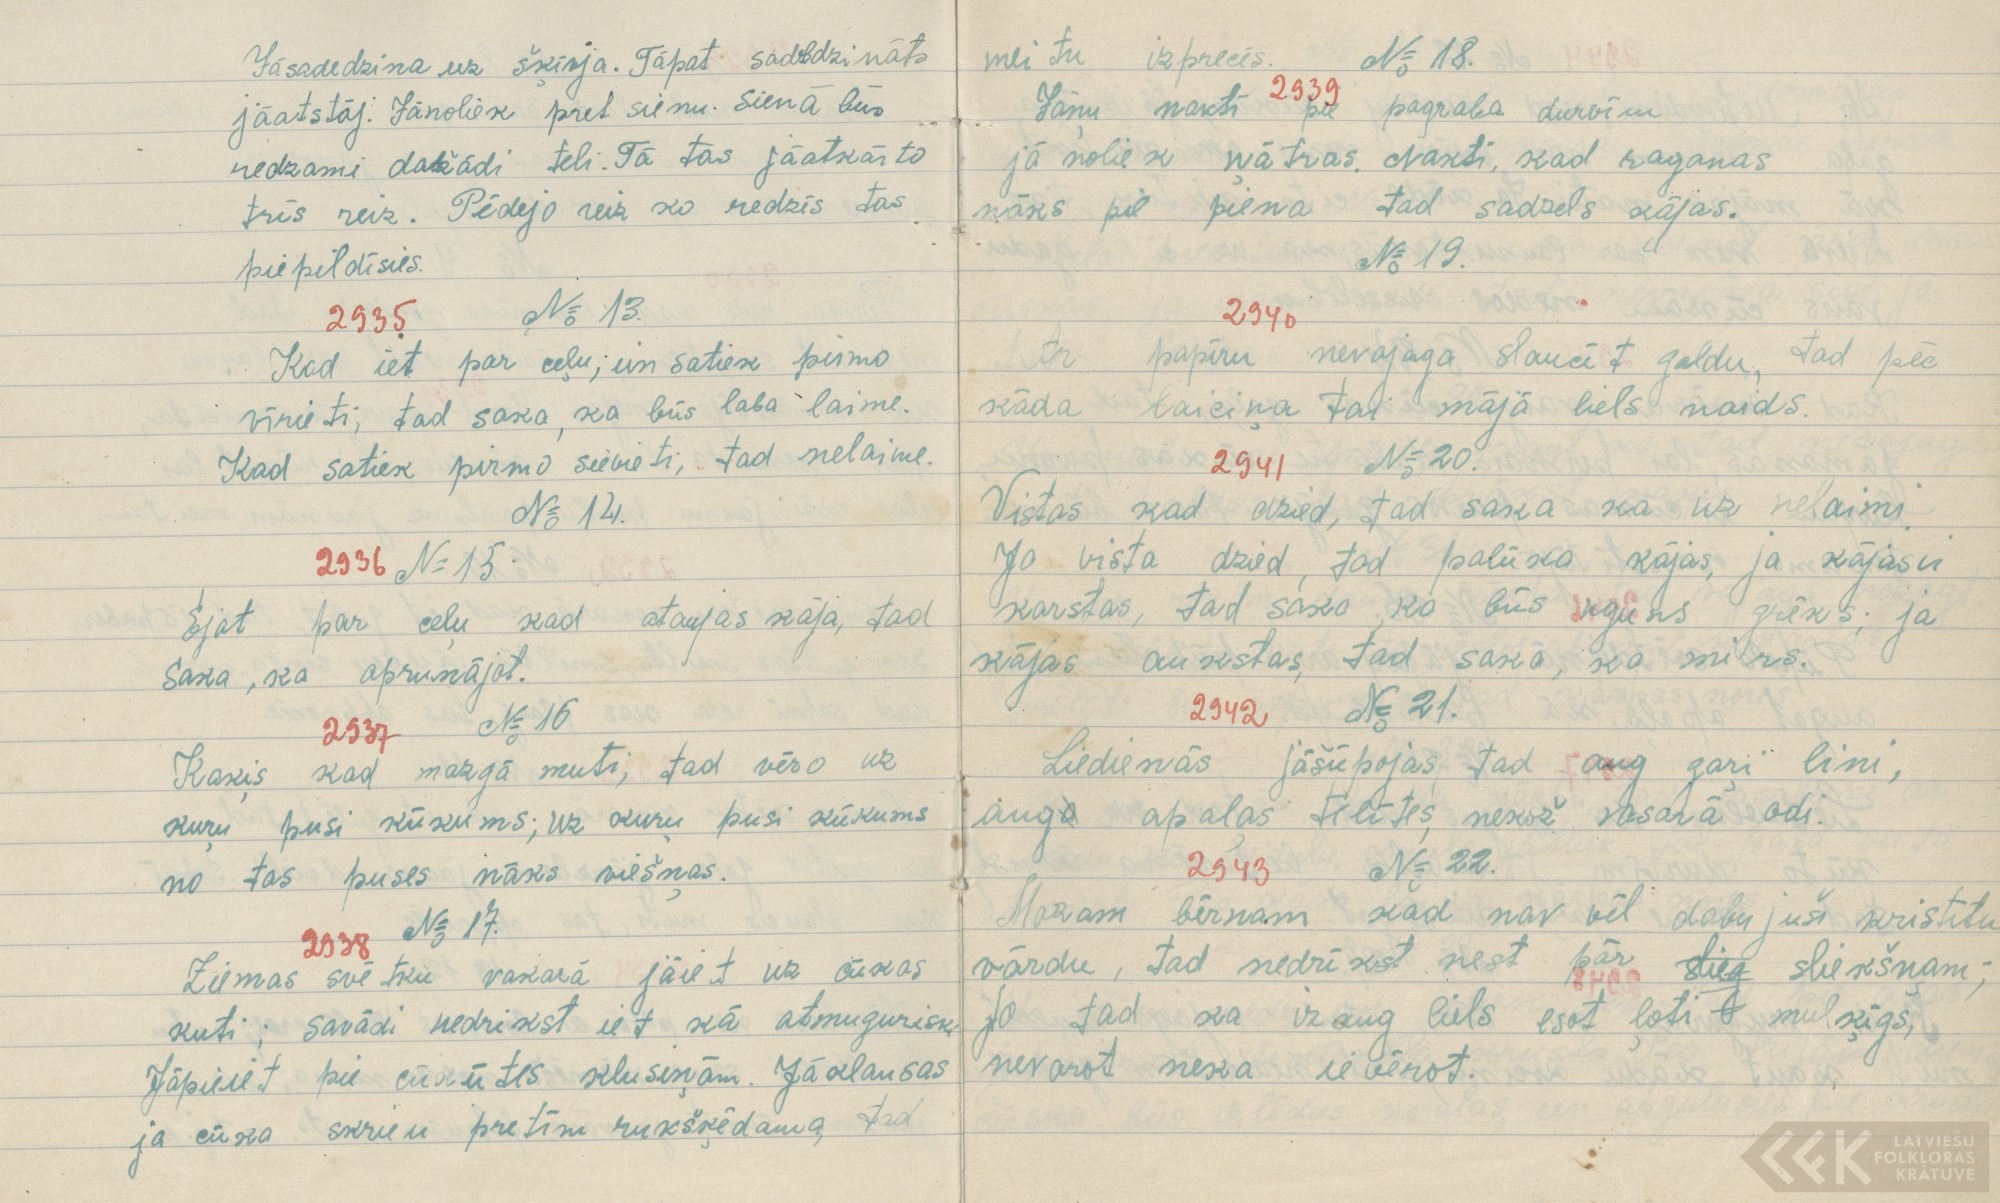 Jāsadedzina uz šķīvja. Tāpat sadedzināts
jāatstāj. Jānoliek pret sienu. Sienā būs
redzami dažādi tēli. Tā tas jāatkārto
trīs reiz. Pēdejo reiz ko redzēs tas
piepildīsies.
2935 № 13.
Kad iet par ceļu, un satiek pirmo
vīrieti, tad saka, ka būs laba laime.
Kad satiek pirmo sievieti, tad nelaime.
№ 14.
2936 N= 15.
Ejot par ceļu kad ataujas kāja, tad
saka, ka aprunājot.
2937 № 16
Kaķis kad mazgā muti, tad vēro uz
kuŗu pusi kūkums; uz kuŗu pusi kūkums
no tās puses nāks viešņas.
2938 № 17.
Ziemas svētku vakarā jāiet uz cūkas
kuti; savādi nedrīkst iet kā atmugurisk.
Jāpieiet pie cūkūtes klusiņām. Jāklausas
ja cūka skrien pretīm rukšķēdama, tad
meitu izprecēs. № 18.
2939
Jāņu naktī pie pagraba durvīm
jā noliek nātras. Naktī, kad raganas
nāks pie piena tad sadzels kājas.
№ 19.
2940
Ar papīru nevajaga slaucīt galdu, tad pēc
kāda laiciņa tai mājā liels naids.
2941 № 20.
Vistas kad dzied, tad saka ka uz nelaimi.
Ja vista dzied, tad palūka kājas, ja kājas ir
karstas, tad saka, ka būs uguns grēks; ja
kājas aukstas, tad saka, ka mirs.
2942 № 21.
Liedienās jāšūpojas tad aug gaŗi lini,
auga apaļas telītes, nekož vasarā odi.
2943 № 22.
Mazam bērnam kad nav vēl dabujuši kristītu
vārdu, tad nedrīkst nest pār slieg sliekšņam;
jo tad ka izaug liels esot ļoti mulķīgs,
nevarot neka ievērot.
LATVIEŠU
FOLKLORAS
KRĀTUVE